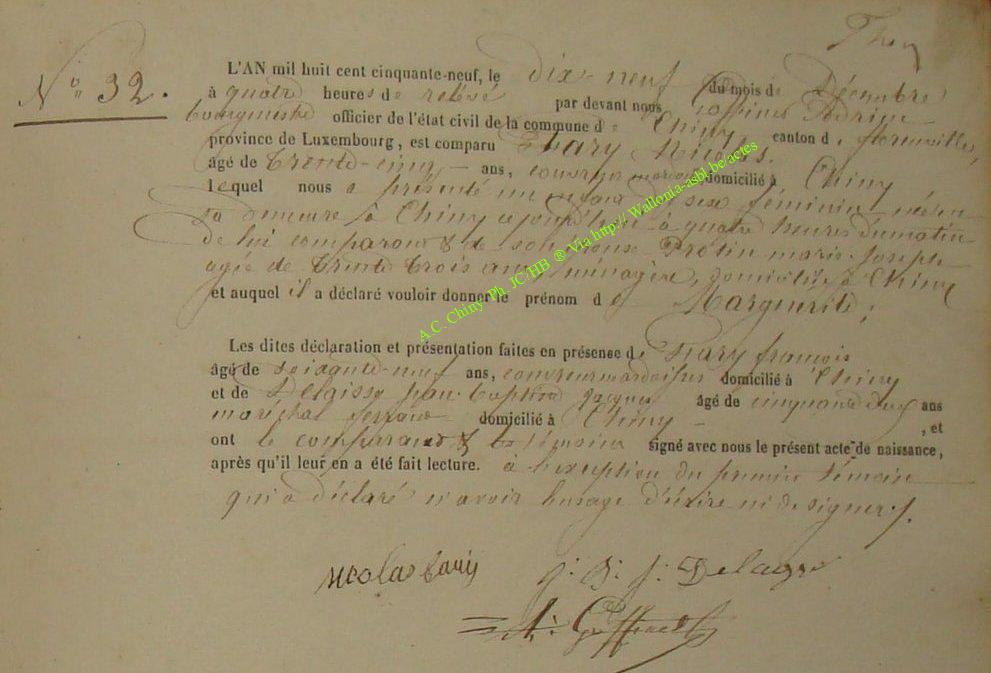 N° 32.
L'AN mil huit cent cinquante-neuf, le dix-neuf du mois de Décembre
à quatre heures de relévé par devant nous Adrien
bourgmestre officier de l'état civil de la commune de Chiny, canton de florenville,
province de Luxembourg, est comparu Nicolas.
âgé de trente-cinq ans, couvreur domicilié à Chiny
lequel nous a présenté un enfant du sexe féminin née en
sa demeure à Chiny à quatre heures du matin
de lui comparant & de son épouse Protin marie-Joseph
agée de trente trois ans, ménagère, domiciliée à Chiny
et auquel il a déclaré vouloir donner le prénom de Marguerite;
Les dites déclaration et présentation faites en présence de françois
âgé de soixante-neuf ans, couvreur domicilié à Chiny
et de Jean-baptiste Jacques âgé de cinquante deux ans
maréchal ferrant domicilié à Chiny , et
ont le comparant & témoins signé avec nous le présent acte de naissance,
après qu'il leur en a été fait lecture. à l'exception du premier témoin
qui a déclaré n'avoir l'usage d'écrire ni de signer.
J. B. J.
A.C. Chiny Ph. JC/HB ® Via http:// Wallonia-asbl.be/actes